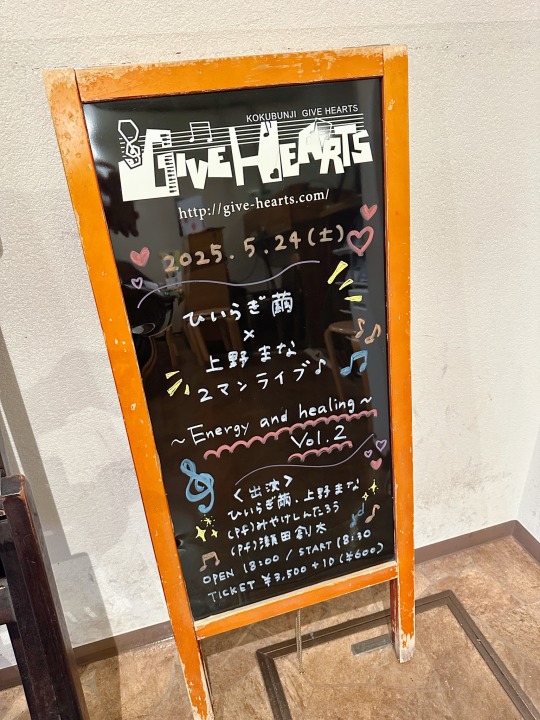 KOKUBUNJI GIVE HEARTS
GIVE HEARTS
http://give-hearts.com/
2025.5.24(土)
ひいらぎ繭
×
上野まな
2マンライブ♪
~Energy and healing~
Vol.2
<出演>
ひいらぎ繭、上野まな
(Pf)みやけしんたろう
(Pf)瀬田創太
OPEN 18:00 / START 18:30
TICKET ¥3,500+1D(¥600)